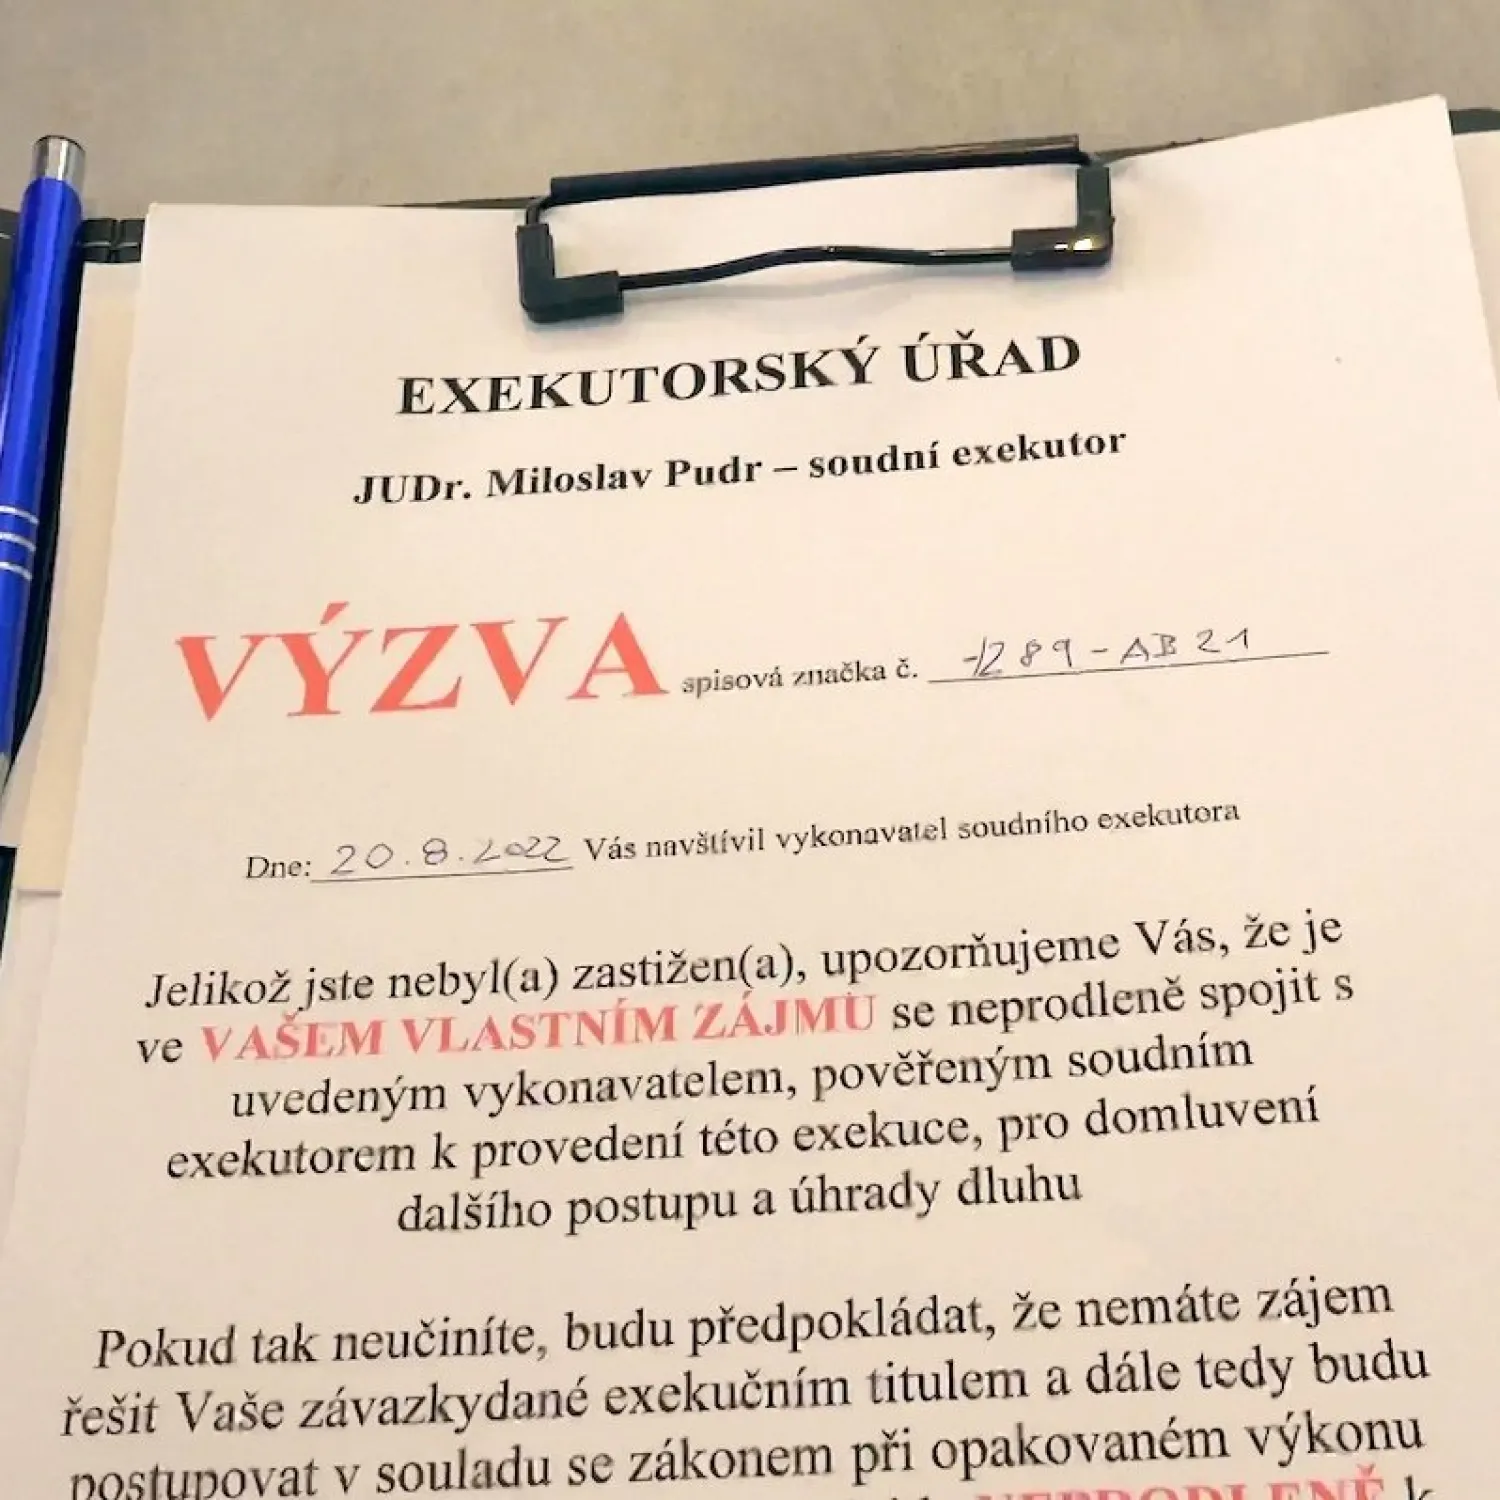 EXEKUTORSKÝ ÚŘAD
JUDr. Miloslav Pudr – soudní exekutor
VÝZVA spisová značka č. 1289-AB21
Dne: 20.8.2022 Vás navštívil vykonavatel soudního exekutora
Jelikož jste nebyl(a) zastižen(a), upozorňujeme Vás, že je
ve VAŠEM VLASTNÍM ZÁJMU se neprodleně spojit s
uvedeným vykonavatelem, pověřeným soudním
exekutorem k provedení této exekuce, pro domluvení
dalšího postupu a úhrady dluhu
Pokud tak neučiníte, budu předpokládat, že nemáte zájem
řešit Vaše závazkydané exekučním titulem a dále tedy budu
postupovat v souladu se zákonem při opakovaném výkonu
NEPRODLENĚ k